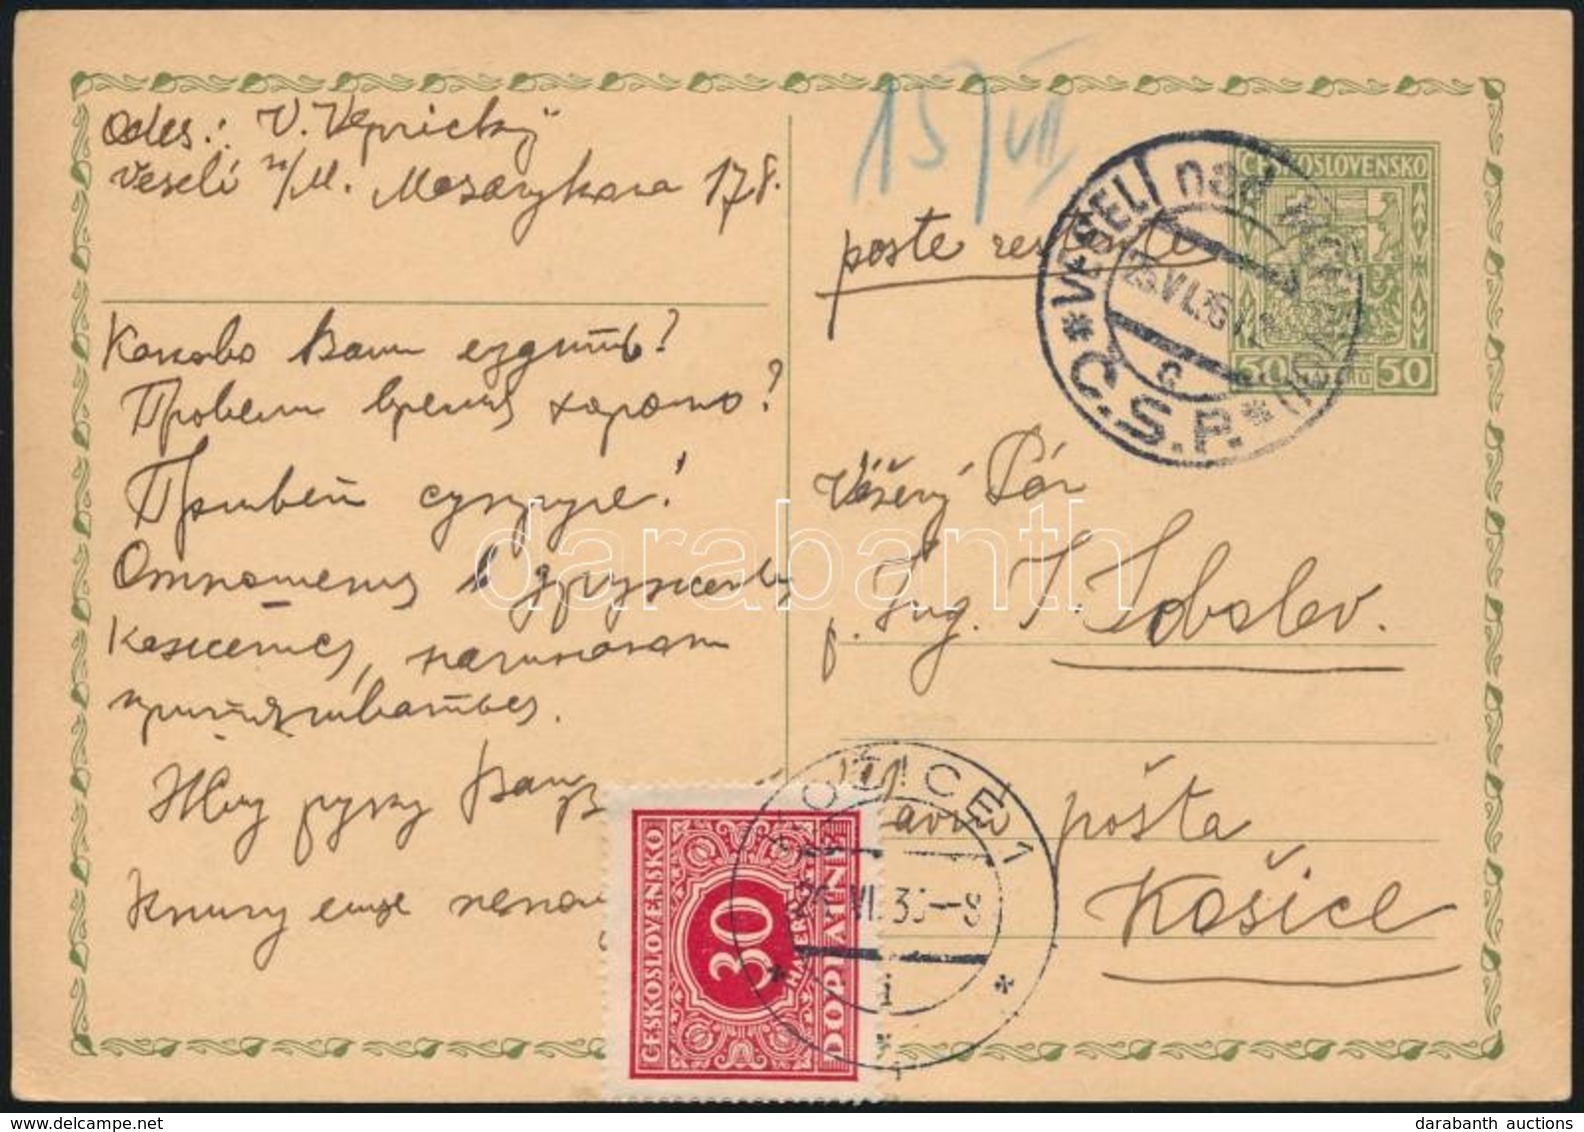 Odes.: V. Vepřický
Veselí n/M. Masarykova 178.
Каково Вам ездить?
Провели время хорошо?
Привет супруге!
Отношения в дружество
кажется, начинают
притягиваться.
Жму руку Вашу
Книгу еще
15/VII
poste restante
VESELÍ nad MORAVOU
Č.S.P.
ČESKOSLOVENSKO
50 HALÉŘŮ 50
Vážený Pán
p. Ing. I. Sobolev.
Hlavní pošta
Košice
KOŠICE 1
26.VI.36-8
ČESKOSLOVENSKO
30
HALÉŘŮ
DOPLATNÉ
darabanth
delcampe.net
darabanth auctions